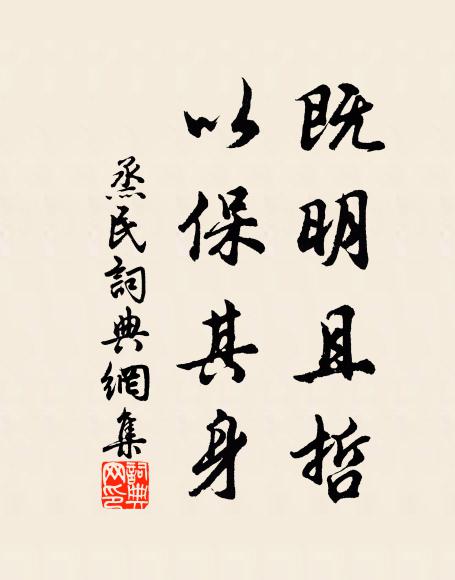 既明且哲
以保其身
烝民詞典網集
詞典网印